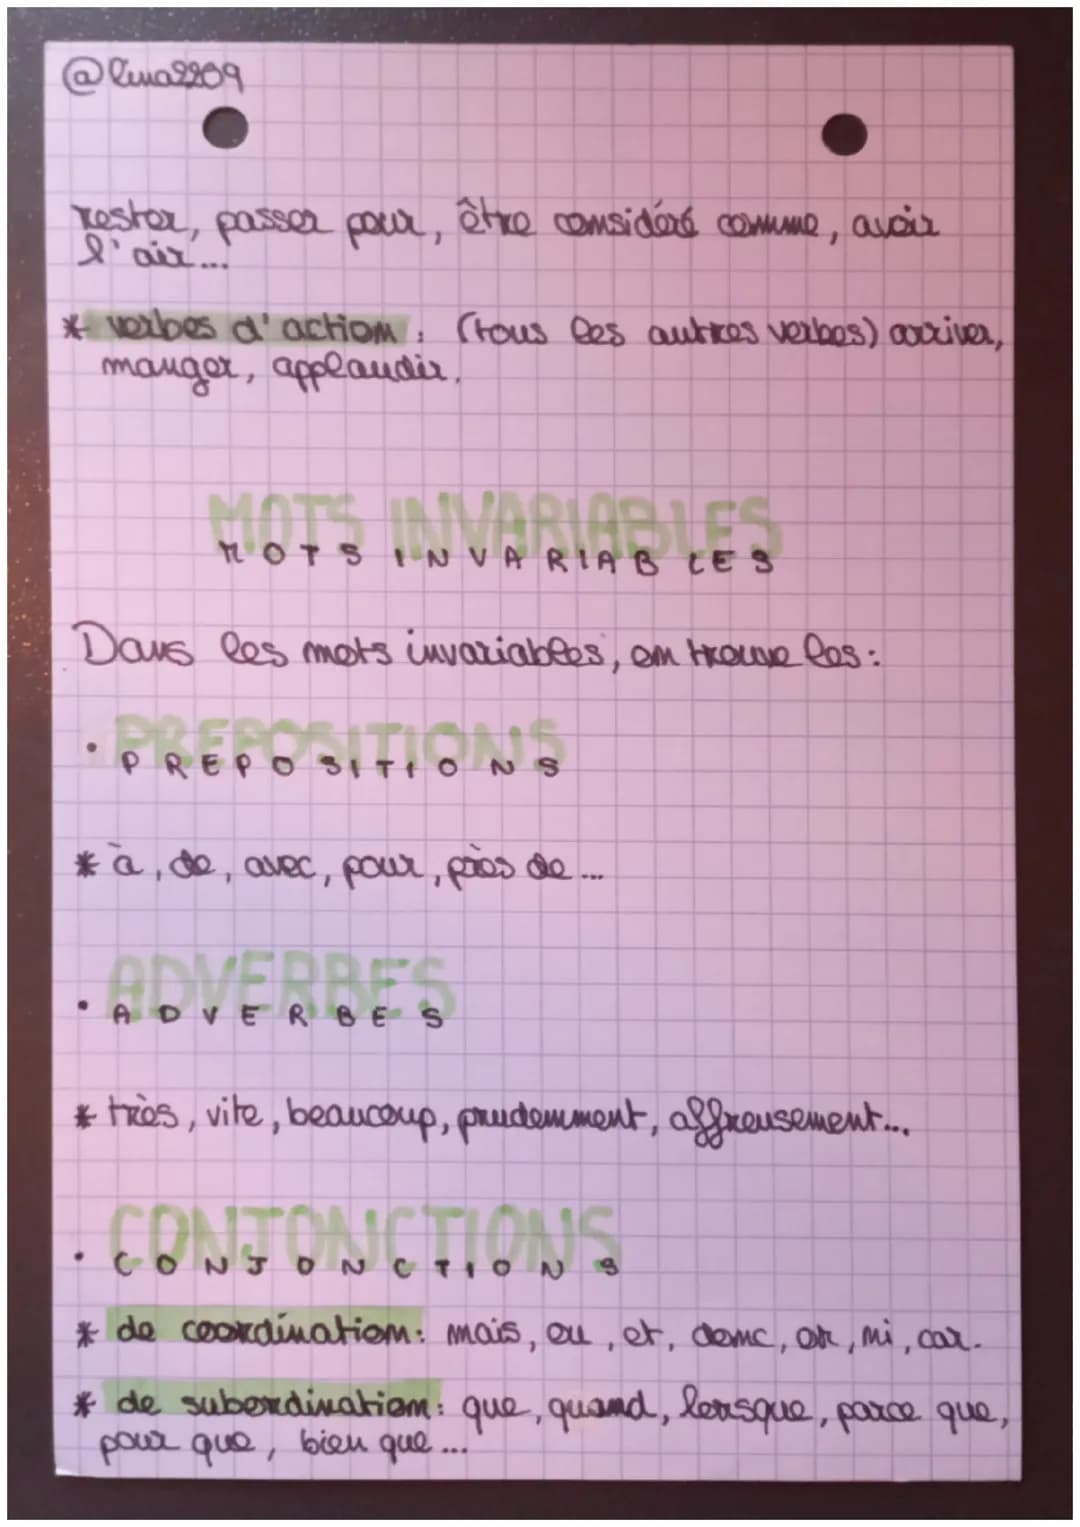 @lina2209
rester, passer pour, être considéré comme, avoir
l'air...
* verbes d'action : (tous les autres verbes) arriver,
manger, applaudir.
MOTS INVARIABLES
MOTS INVARIABLES
Dans les mots invariables, on trouve les :
• PREPOSITIONS
PREPOSITIONS
* à, de, avec, pour, près de...
ADVERBES
• ADVERBES
* très, vite, beaucoup, prudemment, affreusement...
CONJONCTIONS
• CONJONCTIONS
* de coordination : mais, ou, et, donc, or, ni, car.
* de subordination : que, quand, lorsque, parce que,
pour que, bien que...